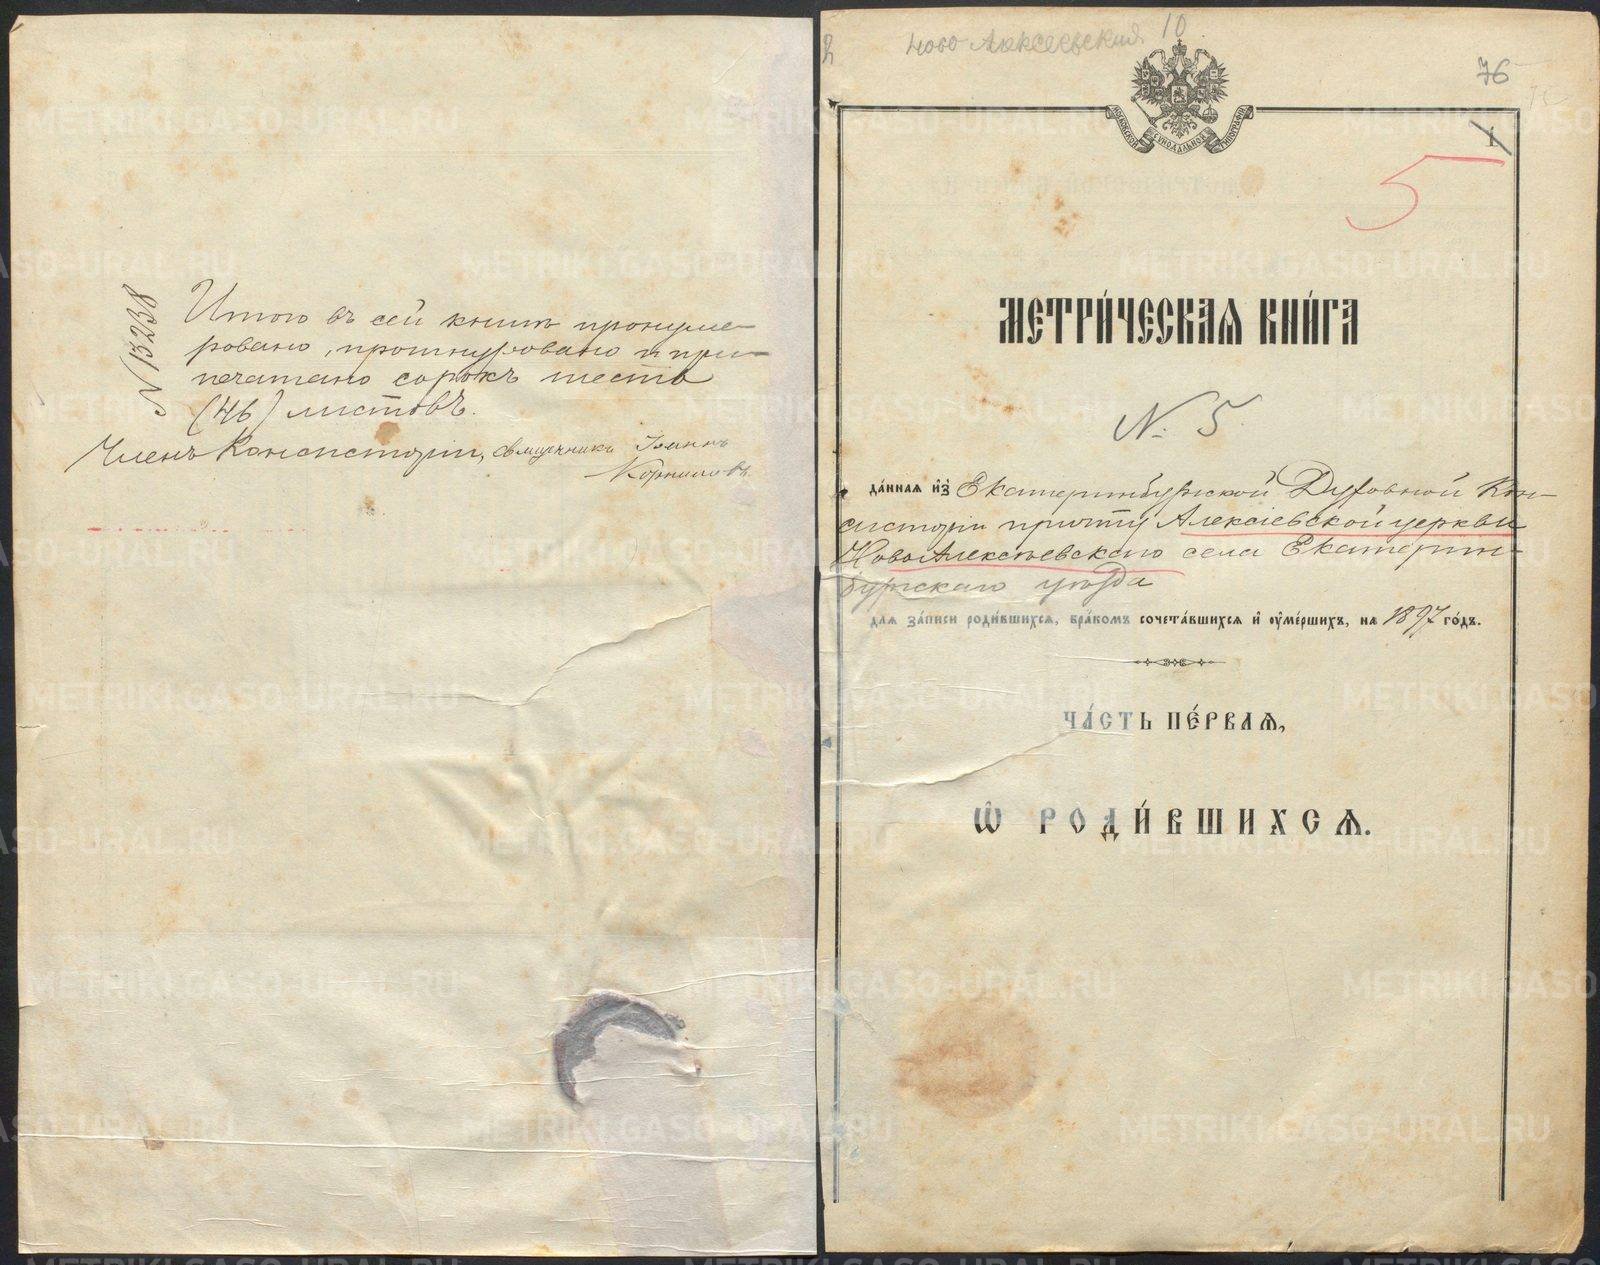 N 13238
Итого въ сей книгѣ пронуме-
ровано, прошнуровано и при-
печатано сорокъ шесть
(46) листовъ.
Членъ Консисторіи, священникъ Іоаннъ
Корниловъ
Ново Алексеевская 10
76
1
5
МОСКОВСКОЙ СУНОДАЛЬНОЙ ТИПОГРАФІИ
МЕТРИ́ЧЕСКАѦ КНИ́ГА
№ 5.
да́ннаѧ и҆з̾ Екатеринбургской Духовной Кон-
систоріи причту Алексіевской церкви
НовоАлексѣевскаго села Екатерин-
бургскаго уѣзда
для за́писи роди́вшихсѧ, бра́комъ сочета́вшихсѧ и҆ ᲂу҆ме́ршихъ, на 1897 го́дъ.
ЧА́СТЬ ПЕ́РВАѦ,
Ѡ҆ РОДИ́ВШИХСѦ.
METRIKI.GASO-URAL.RU